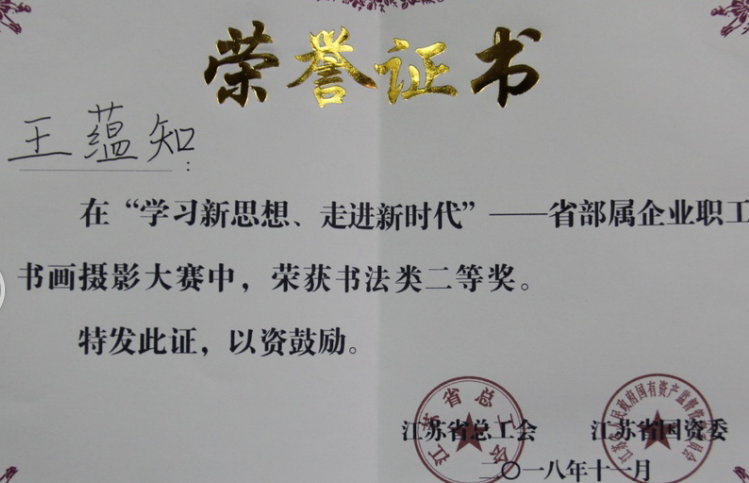 荣誉证书
王蕴知：
在“学习新思想、走进新时代”——省部属企业职工
书画摄影大赛中，荣获书法类二等奖。
特发此证，以资鼓励。
江苏省总工会 江苏省国资委
二〇一八年十一月
江苏省总工会